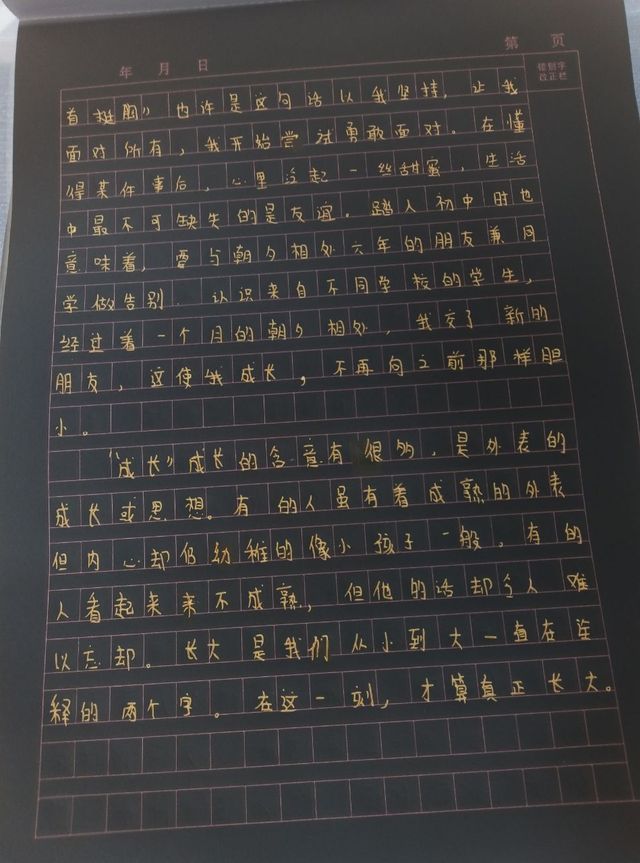 第 页
年 月 日
错别字
改正栏
首挺胸》也许是这句话以我坚持，让我
面对所有，我开始尝试勇敢面对。在懂
得某件事后，心里泛起一丝甜蜜，生活
中最不可缺失的是友谊。踏入初中时也
意味着，要与朝夕相处六年的朋友兼同
学做告别．认识来自不同学校的学生，
经过着一个月的朝夕相处，我交了新的
朋友，这使我成长，不再向之前那样胆
小。
“成长”成长的含意有很多，是外表的
成长或思想。有的人虽有着成熟的外表
但内心却仍幼稚的像小孩子一般，有的
人看起来来不成熟，但他的话却令人难
以忘却。长大是我们从小到大一直在诠
释的两个字。在这一刻，才算真正长大。